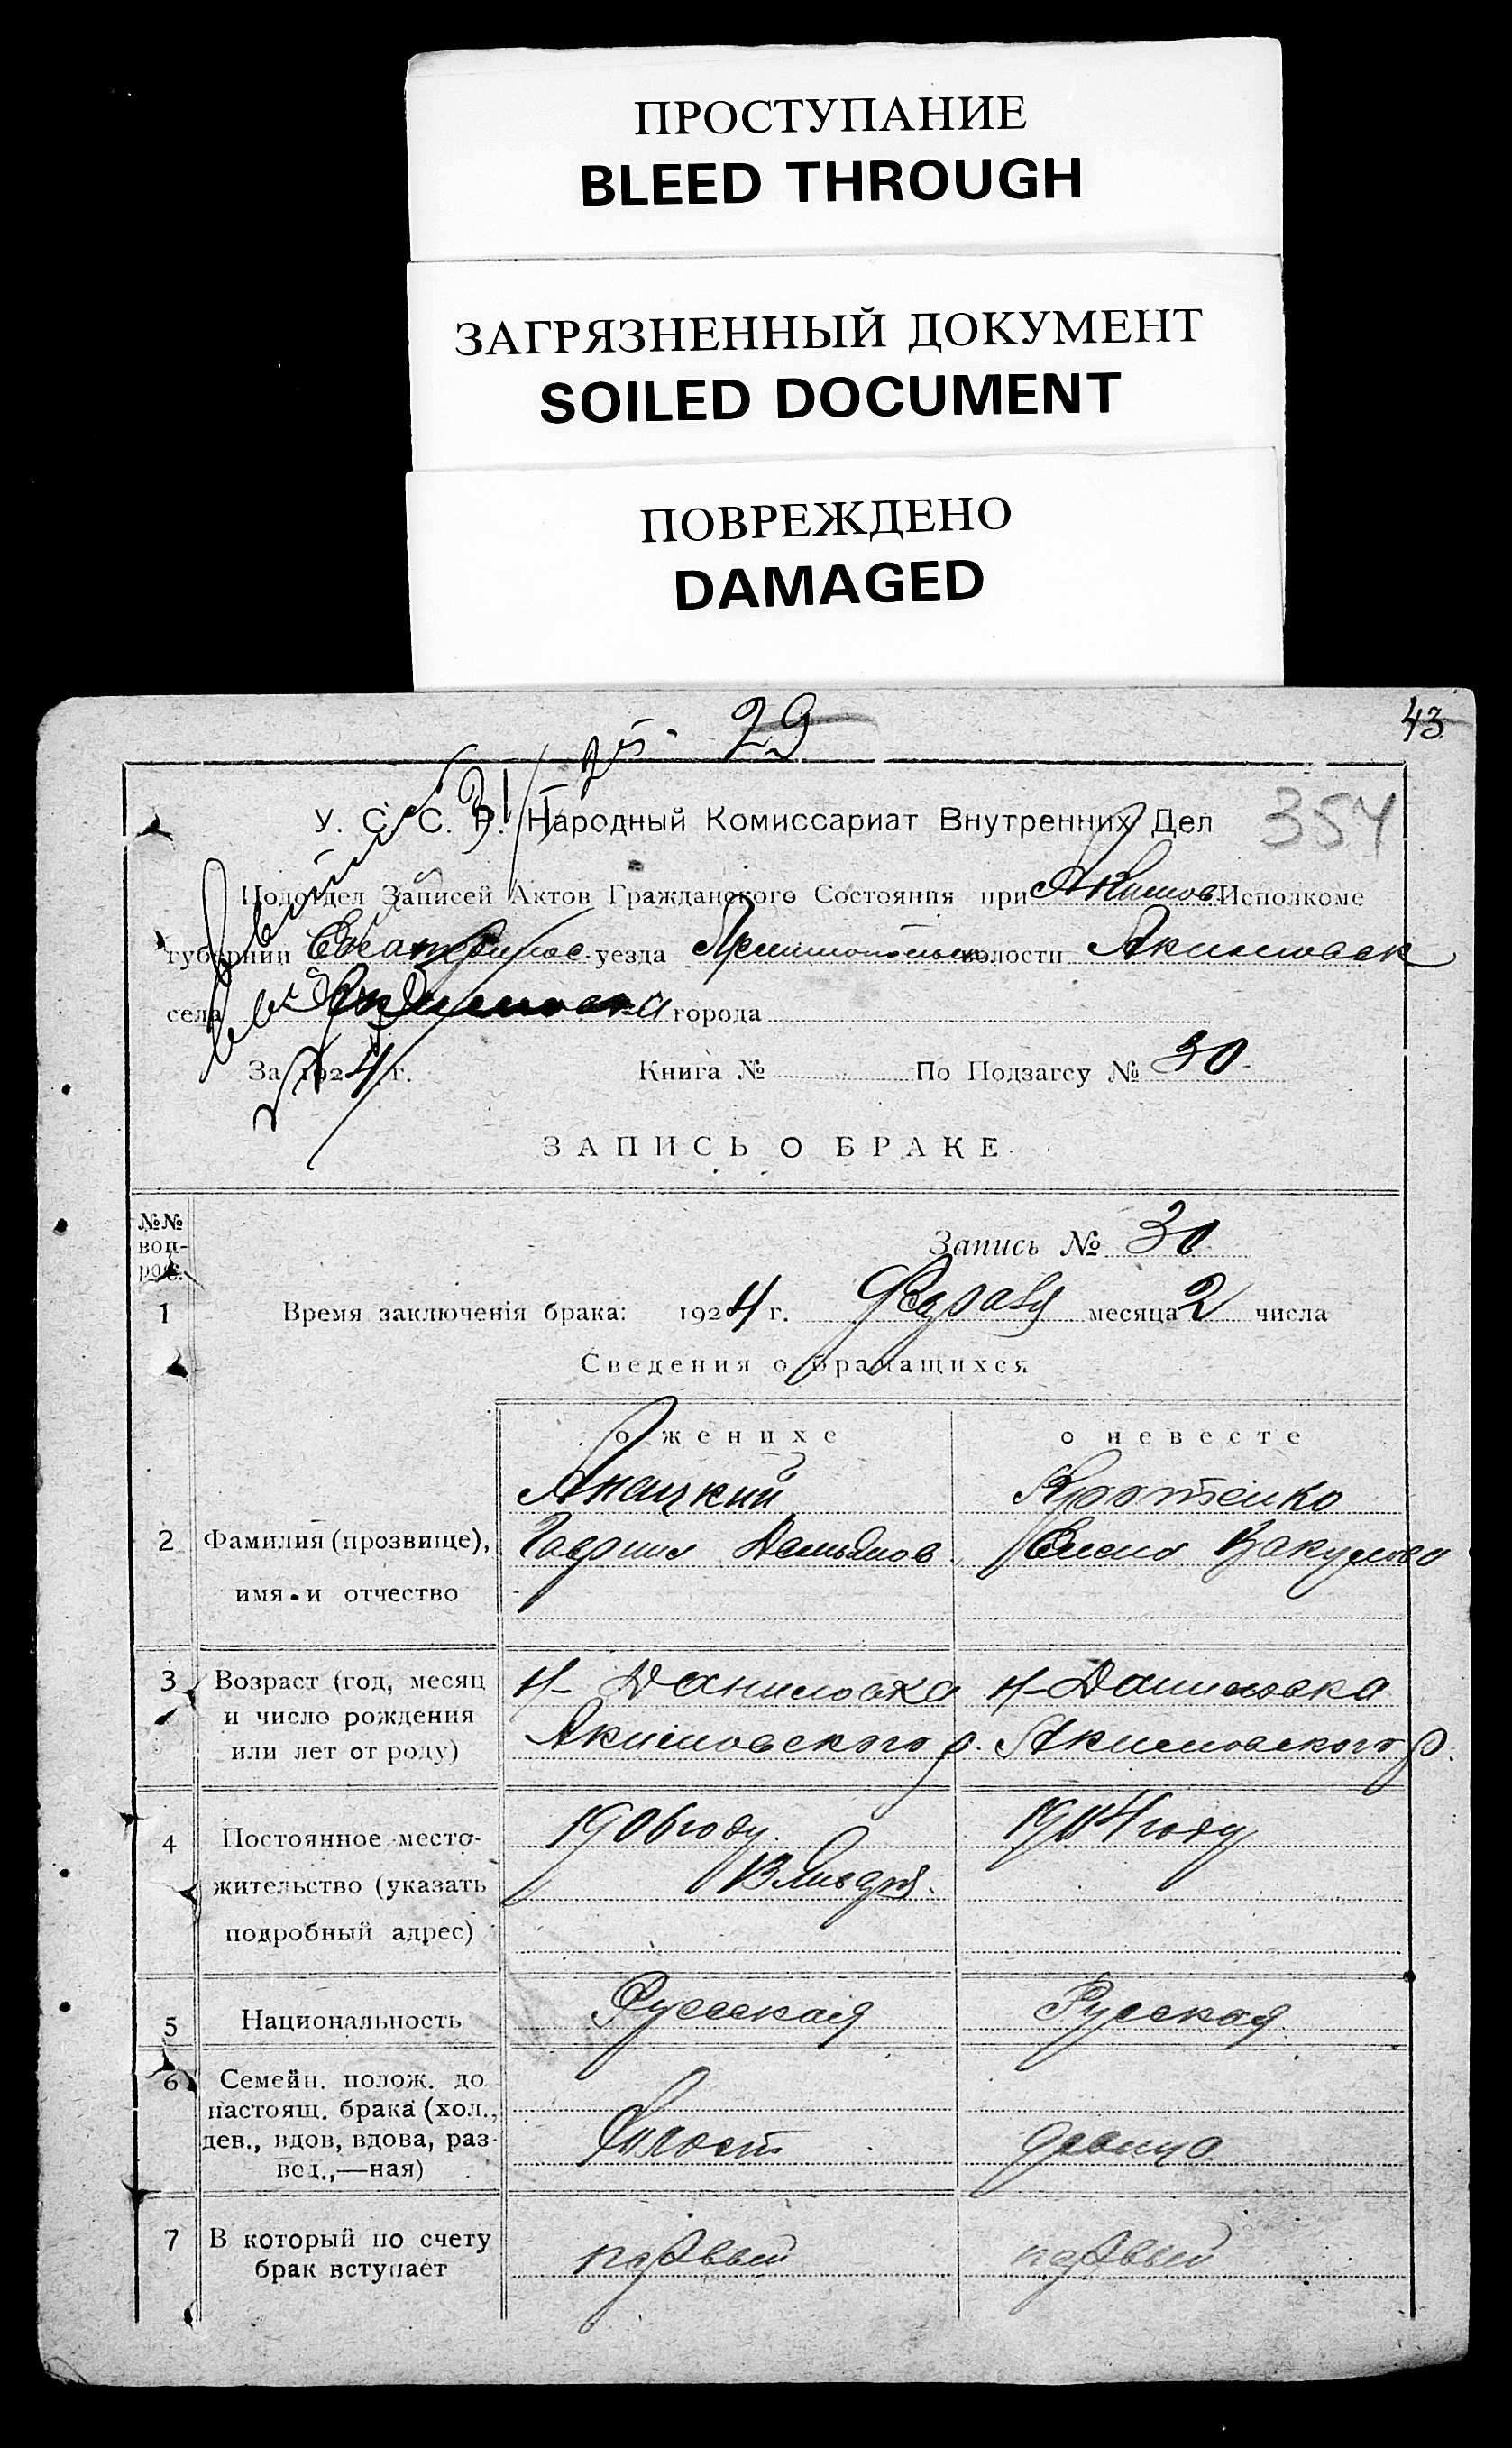 ПРОСТУПАНИЕ
BLEED THROUGH
ЗАГРЯЗНЕННЫЙ ДОКУМЕНТ
SOILED DOCUMENT
ПОВРЕЖДЕНО
DAMAGED
29
43
У. С. С. Р. Народный Комиссариат Внутренних Дел
354
Подотдел Записей Актов Гражданского Состояния при Акимов. Исполкоме
губернии Екатеринос. уезда волости Акимовск
села Акимовка города
За 1924 г. Книга № По Подзагсу № 30
ЗАПИСЬ О БРАКЕ.
№№ воп-рос.
Запись № 30
1 Время заключенія брака: 1924 г. месяца 2 числа
Сведения о брачащихся
о женихе о невесте
Янацкий Кротенко
2 Фамилия (прозвище), имя и отчество Гаврил Демьянов. Елена Вакулова
3 Возраст (год, месяц и число рождения или лет от роду)
Н-Даниловка Н-Даниловка
Акимовского р. Акимовского р.
4 Постоянное место-жительство (указать подробный адрес)
1906 году. 1904 году
13
5 Национальность Русская Русская
6 Семейн. полож. до настоящ. брака (хол., дев., вдов, вдова, раз-вед.,—ная) Холост девица
7 В который по счету брак вступает первый первый